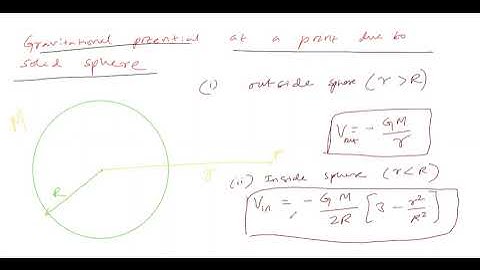 Gravitational potential at a point due to
solid sphere
(i) outside sphere (r > R)
M
P
V = - GM/r
R
r
(ii) Inside sphere (r < R)
Vin = - GM/2R [3 - r²/R²]